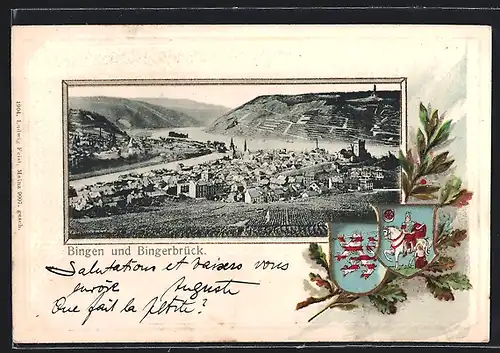 1904. Ludwig Feist, Mainz 9097. gesch.
Bingen und Bingerbrück.
Salutations et baisers vous
envoie Auguste
Que fait la petite?